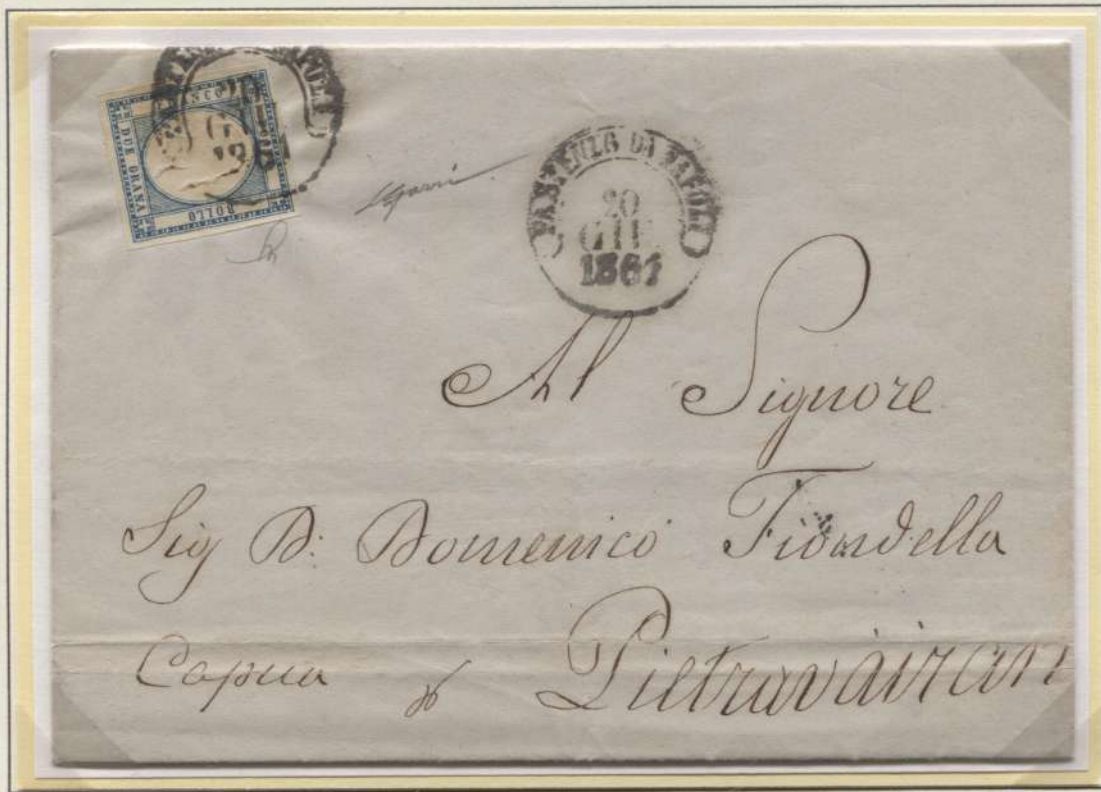 DUE GRANA
BOLLO
PARTENZA DA NAPOLI
20
GIU
1861
Al Signore
Sig D: Domenico Fiondella
Capua p Pietravairano